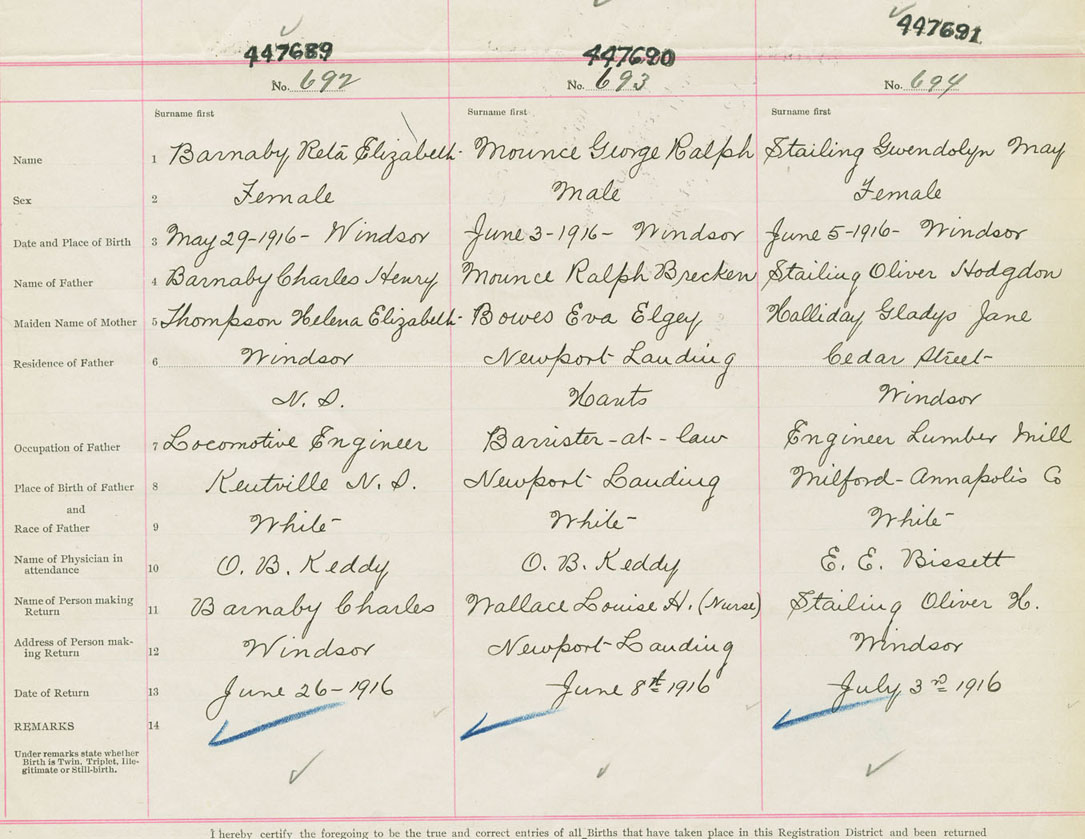 447689 447690 447691
No. 692 No. 693 No. 694
Surname first Surname first Surname first
Name 1 Barnaby Reta Elizabeth Mounce George Ralph Stailing Gwendolyn May
Sex 2 Female Male Female
Date and Place of Birth 3 May 29-1916- Windsor June 3-1916- Windsor June 5-1916- Windsor
Name of Father 4 Barnaby Charles Henry Mounce Ralph Brecken Stailing Oliver Hodgdon
Maiden Name of Mother 5 Thompson Helena Elizabeth Bowes Eva Elgey Halliday Gladys Jane
Residence of Father 6 Windsor Newport Landing Cedar Street
N.S. Hants Windsor
Occupation of Father 7 Locomotive Engineer Barrister-at-law Engineer Lumber Mill
Place of Birth of Father 8 Kentville N.S. Newport Landing Milford-Annapolis Co
and
Race of Father 9 White White White
Name of Physician in
attendance 10 O. B. Keddy O. B. Keddy E. E. Bissett
Name of Person making
Return 11 Barnaby Charles Wallace Louise H. (Nurse) Stailing Oliver H.
Address of Person mak-
ing Return 12 Windsor Newport Landing Windsor
Date of Return 13 June 26-1916 June 8th 1916 July 3rd 1916
REMARKS 14
Under remarks state whether
Birth is Twin, Triplet, Ille-
gitimate or Still-birth.
I hereby certify the foregoing to be the true and correct entries of all Births that have taken place in this Registration District and been returned